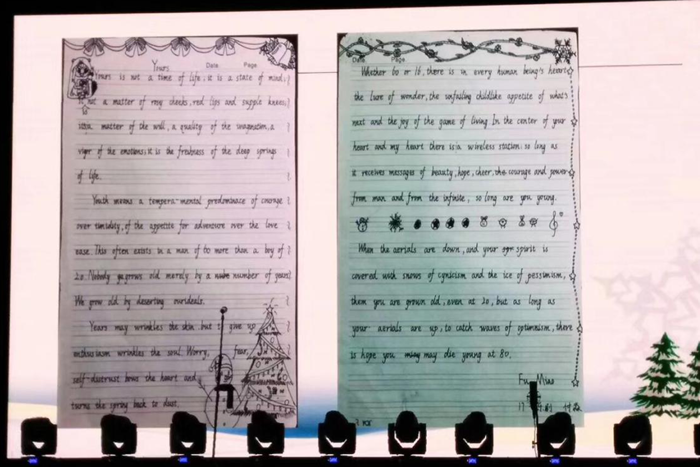 Yours Date Page
Yours is not a time of life; it is a state of mind;
is not a matter of rosy cheeks, red lips and supple knees,
it is a matter of the will, a quality of the imagination, a
vigor of the emotions; it is the freshness of the deep springs
of life.
Youth means a tempera-mental predominance of courage
over timidity, of the appetite for adventure over the love
ease. This often exists in a man of 60 more than a boy of
20. Nobody grows old merely by a number of years
We grow old by deserting ourideals.
Years may wrinkles the skin, but to give up
enthusiasm wrinkles the soul. Worry, fear,
self-distrust bows the heart and
turns the spring back to dust.
Date Page
Whether 60 or 16, there is in every human being's heart
the lure of wonder, the unfailing childlike appetite of what's
next and the joy of the game of living. In the center of your
heart and my heart there is a wireless station: so long as
it receives messages of beauty, hope, cheer, the courage and power
from man and from the infinite, so long are you young.
When the aerials are down, and your spirit is
covered with snows of cynicism and the ice of pessimism,
them you are grown old, even at 20, but as long as
your aerials are up, to catch waves of optimism, there
is hope you may die young at 80.